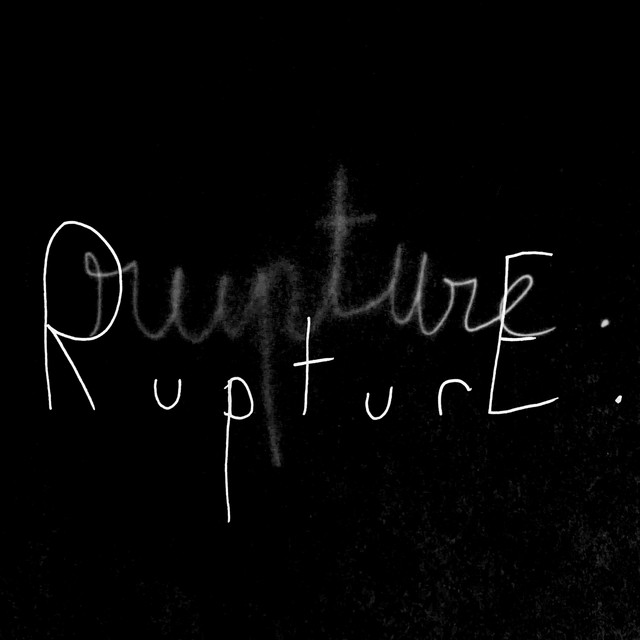 rupture.
RupturE.